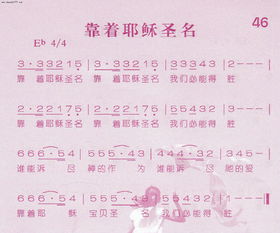 46
靠着耶稣圣名
Eb 4/4
3·33215 | 3·33215 | 333343 | 2--- |
靠 着耶稣圣名 靠 着耶稣圣名 我们必能得 胜
2·22175 | 2·22175 | 222132 | 1--- |
靠 着耶稣圣名 靠 着耶稣圣名 我们必能得 胜
666·54 | 555·43 | 444·32 | 345
谁能诉 尽 神的作 为 谁能诉 尽 祂的爱
666·54 | 555·43 | 55432 | 1---
靠着耶 稣 宝贝圣 名 我们必能得 胜